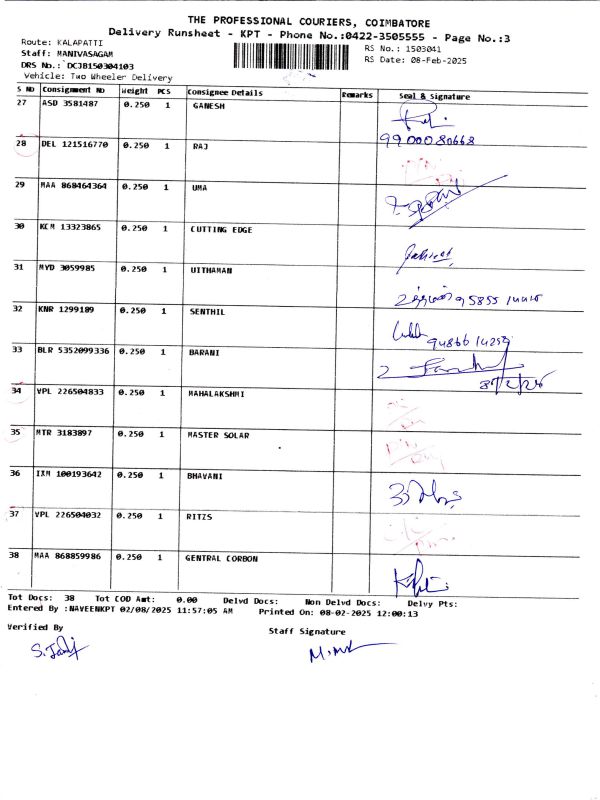 THE PROFESSIONAL COURIERS, COIMBATORE
Delivery Runsheet - KPT - Phone No.:0422-3505555 - Page No.:3
Route: KALAPATTI
RS No.: 1503041
Staff: MANIVASAGAM
RS Date: 08-Feb-2025
DRS No.: DCJB150304103
Vehicle: Two Wheeler Delivery
S NO Consignment No Weight PCS Consignee Details Remarks Seal & Signature
27 ASD 3581487 0.250 1 GANESH
9900080668
28 DEL 121516770 0.250 1 RAJ
29 MAA 868464364 0.250 1 UMA
30 KCM 13323865 0.250 1 CUTTING EDGE
31 MYD 3059985 0.250 1 UITHAMAN
95855
32 KNR 1299189 0.250 1 SENTHIL
33 BLR 5352099336 0.250 1 BARANI
34 VPL 226504833 0.250 1 MAHALAKSHMI
35 MTR 3183897 0.250 1 MASTER SOLAR
36 IXM 100193642 0.250 1 BHAVANI
37 VPL 226504032 0.250 1 RITZS
38 MAA 868859986 0.250 1 GENTRAL CORBON
Tot Docs: 38 Tot COD Amt: 0.00 Delvd Docs: Non Delvd Docs: Delvy Pts:
Entered By :NAVEENKPT 02/08/2025 11:57:05 AM Printed On: 08-02-2025 12:00:13
Verified By
Staff Signature